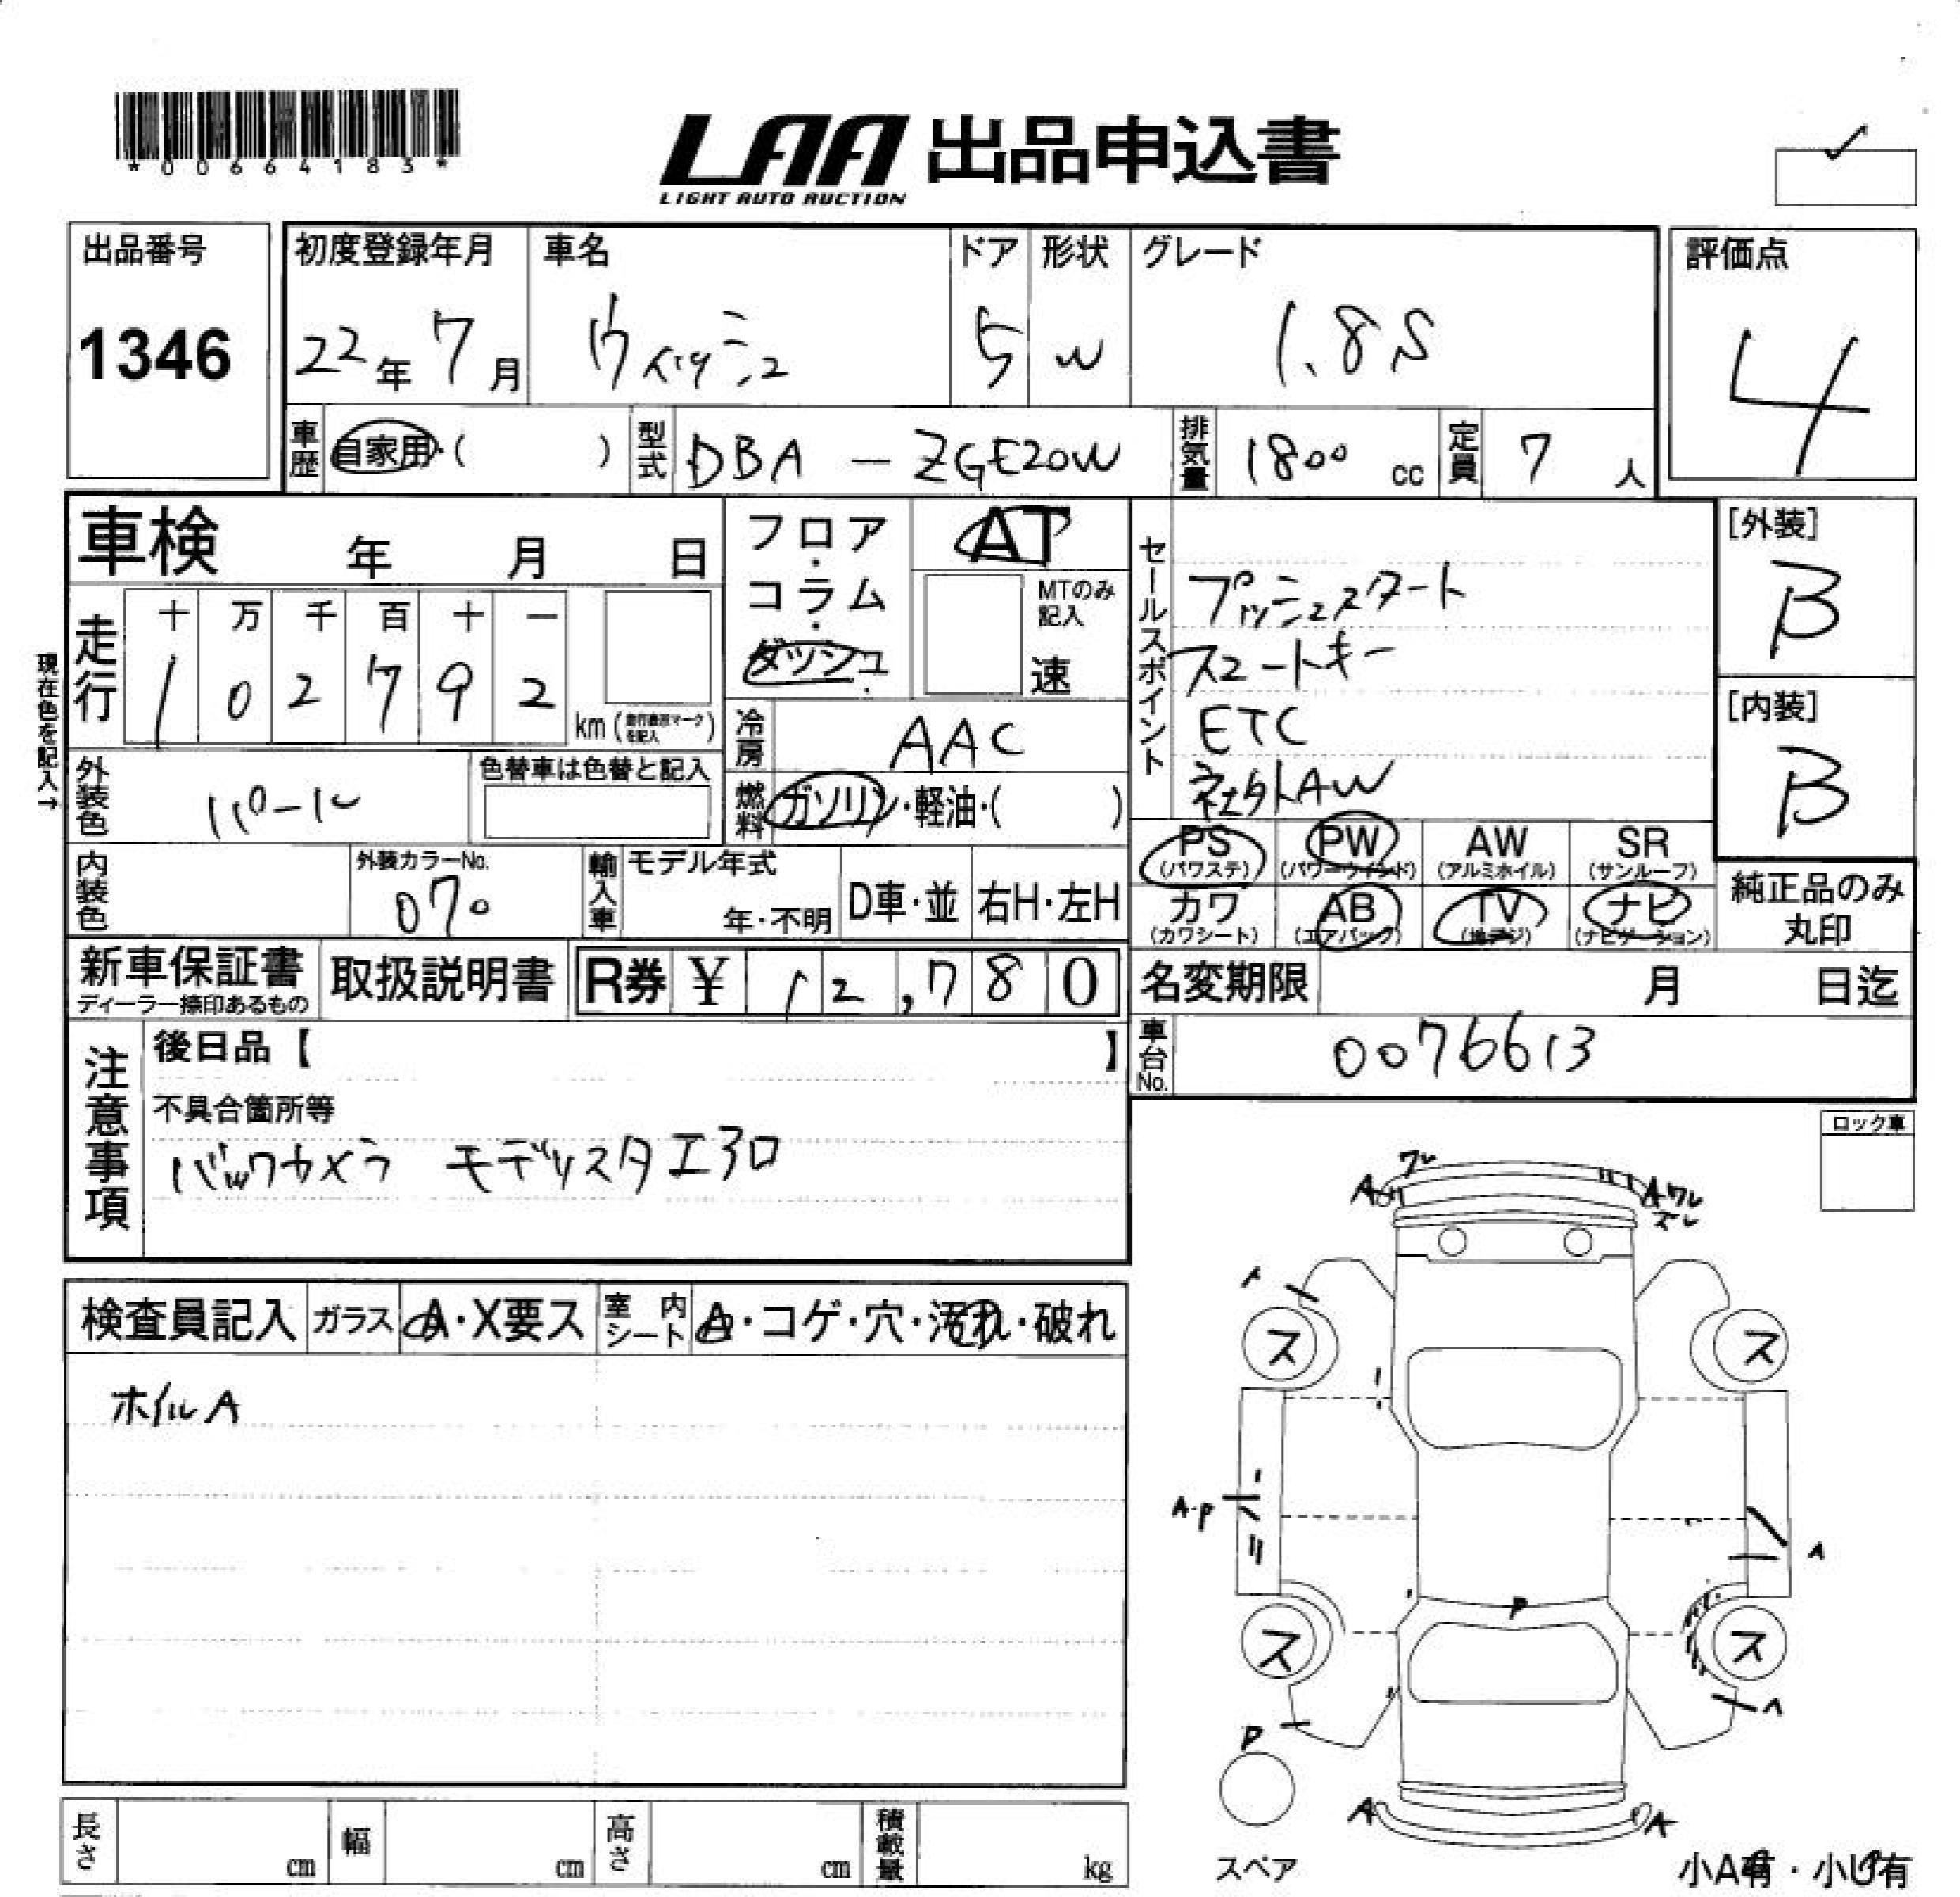 *00664183*
LAA 出品申込書
LIGHT AUTO AUCTION
出品番号
1346
初度登録年月
22年 7月
車名
ウィッシュ
ドア
5
形状
W
グレード
1.8S
評価点
4
車歴 自家用・( )
型式 DBA - ZGE20W
排気量 1800 cc
定員 7 人
車検 年 月 日
走行
十 万 千 百 十 一
1 0 2 7 9 2
km (走行表示マークを記入)
現在色を記入→
フロア・コラム・ダッシュ
AT
MTのみ記入
速
冷房 AAC
燃料 ガソリン・軽油・( )
外装色 パール
色替車は色替と記入
内装色
外装カラーNo.
070
輸入車 モデル年式
年・不明
D車・並
右H・左H
セールスポイント
プッシュスタート
スマートキー
ETC
社外AW
[外装]
B
[内装]
B
PS (パワステ)
PW (パワーウインド)
AW (アルミホイル)
SR (サンルーフ)
カワ (カワシート)
AB (エアバック)
TV (地デジ)
ナビ (ナビゲーション)
純正品のみ丸印
新車保証書
ディーラー捺印あるもの
取扱説明書
R券 ¥ 12,780
名変期限 月 日迄
車台No. 0076613
注意事項
後日品【 】
不具合箇所等
バックカメラ モデリスタエアロ
ロック車
検査員記入
ガラス A・X要ス
室内シート A・コゲ・穴・汚れ・破れ
ホイルA
ワレ
A
Aワレ
ズレ
A
ス
ス
A・P
A
P
ス
ス
A
P
A
A
スペア
小A有・小U有
長さ cm
幅 cm
高さ cm
積載量 kg